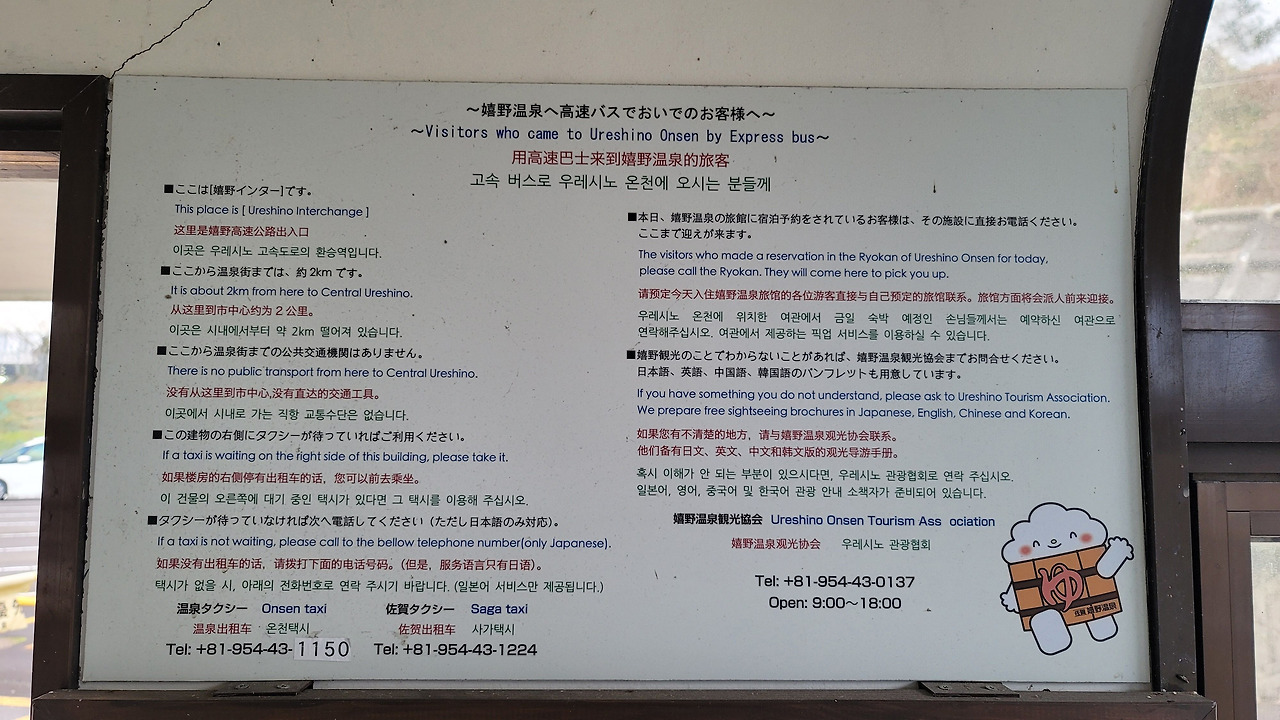 ～嬉野温泉へ高速バスでおいでのお客様へ～
～Visitors who came to Ureshino Onsen by Express bus～
用高速巴士来到嬉野温泉的旅客
고속 버스로 우레시노 온천에 오시는 분들께
■ここは[嬉野インター]です。
This place is [ Ureshino Interchange ]
这里是嬉野高速公路出入口
이곳은 우레시노 고속도로의 환승역입니다.
■ここから温泉街までは、約2kmです。
It is about 2km from here to Central Ureshino.
从这里到市中心约为 2 公里。
이곳은 시내에서부터 약 2km 떨어져 있습니다.
■ここから温泉街までの公共交通機関はありません。
There is no public transport from here to Central Ureshino.
没有从这里到市中心,没有直达的交通工具。
이곳에서 시내로 가는 직항 교통수단은 없습니다.
■この建物の右側にタクシーが待っていればご利用ください。
If a taxi is waiting on the right side of this building, please take it.
如果楼房的右侧停有出租车的话，您可以前去乘坐。
이 건물의 오른쪽에 대기 중인 택시가 있다면 그 택시를 이용해 주십시오.
■タクシーが待っていなければ次へ電話してください（ただし日本語のみ対応）。
If a taxi is not waiting, please call to the bellow telephone number(only Japanese).
如果没有出租车的话，请拨打下面的电话号码。（但是，服务语言只有日语）。
택시가 없을 시, 아래의 전화번호로 연락 주시기 바랍니다. (일본어 서비스만 제공됩니다.)
温泉タクシー Onsen taxi 佐賀タクシー Saga taxi
温泉出租车 온천택시 佐贺出租车 사가택시
Tel: +81-954-43-1150 Tel: +81-954-43-1224
■本日、嬉野温泉の旅館に宿泊予約をされているお客様は、その施設に直接お電話ください。
ここまで迎えが来ます。
The visitors who made a reservation in the Ryokan of Ureshino Onsen for today,
please call the Ryokan. They will come here to pick you up.
请预定今天入住嬉野温泉旅馆的各位游客直接与自己预定的旅馆联系。旅馆方面将会派人前来迎接。
우레시노 온천에 위치한 여관에서 금일 숙박 예정인 손님들께서는 예약하신 여관으로
연락해주십시오. 여관에서 제공하는 픽업 서비스를 이용하실 수 있습니다.
■嬉野観光のことでわからないことがあれば、嬉野温泉観光協会までお問合せください。
日本語、英語、中国語、韓国語のパンフレットも用意しています。
If you have something you do not understand, please ask to Ureshino Tourism Association.
We prepare free sightseeing brochures in Japanese, English, Chinese and Korean.
如果您有不清楚的地方，请与嬉野温泉观光协会联系。
他们备有日文、英文、中文和韩文版的观光导游手册。
혹시 이해가 안 되는 부분이 있으시다면, 우레시노 관광협회로 연락 주십시오.
일본어, 영어, 중국어 및 한국어 관광 안내 소책자가 준비되어 있습니다.
嬉野温泉観光協会 Ureshino Onsen Tourism Ass ociation
嬉野温泉观光协会 우레시노 관광협회
Tel: +81-954-43-0137
Open: 9:00～18:00
ゆ
佐賀 嬉野温泉